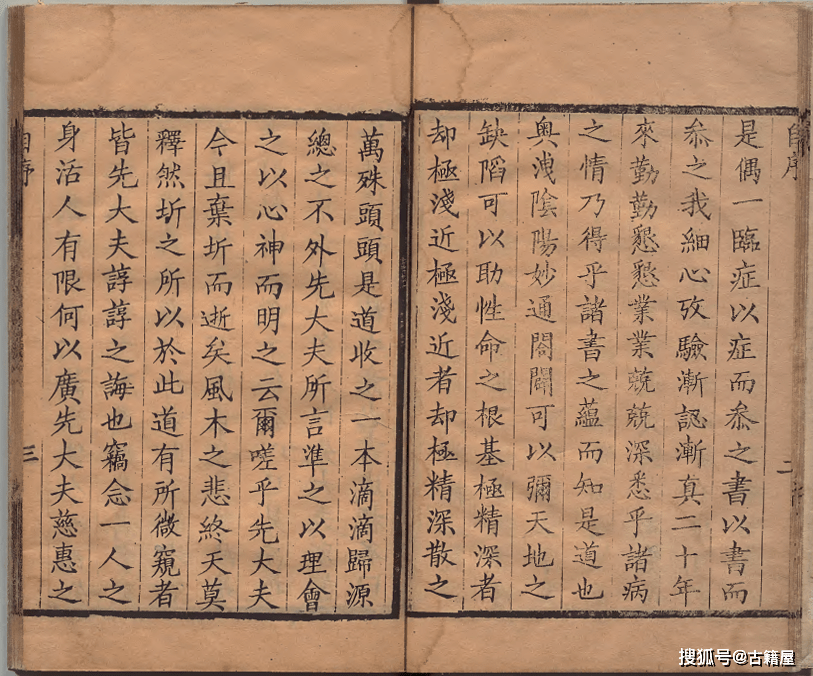 自序
二
是偶一臨症以症而叅之書以書而
叅之我細心攷驗漸認漸真二十年
來勤勤懇懇業業兢兢深悉乎諸病
之情乃得乎諸書之蘊而知是道也
奧洩陰陽妙通闔闢可以彌天地之
缺陷可以助性命之根基極精深者
却極淺近極淺近者却極精深散之
萬殊頭頭是道收之一本滴滴歸源
總之不外先大夫所言準之以理會
之以心神而明之云爾嗟乎先大夫
今且棄圻而逝矣風木之悲終天莫
釋然圻之所以於此道有所微窺者
皆先大夫諄諄之誨也竊念一人之
身活人有限何以廣先大夫慈惠之
自序
三
搜狐号@古籍屋